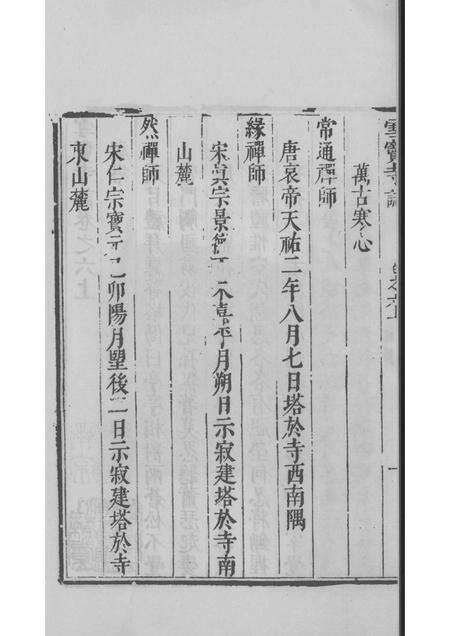 雪竇寺誌
卷之六上
一
萬古寒心
常通禪師
唐哀帝天祐二年八月七日塔於寺西南隅
緣禪師
宋眞宗景德 未嘉平月朔日示寂建塔於寺南
山麓
然禪師
宋仁宗寶元己卯陽月望後二日示寂建塔於寺
東山麓